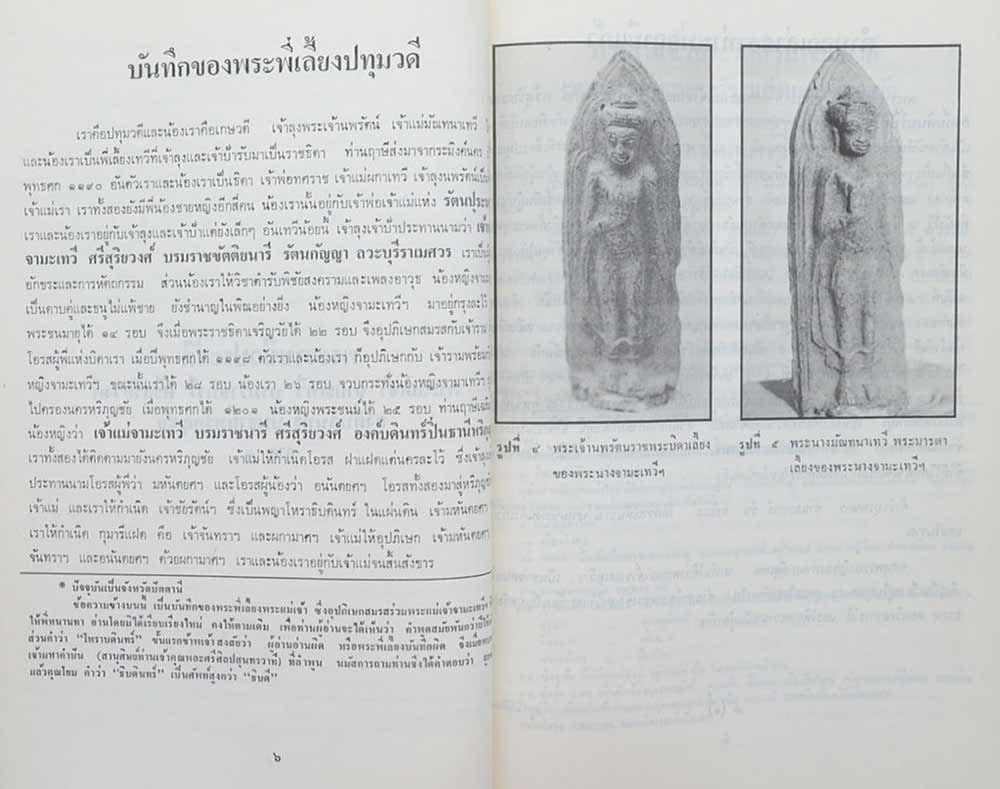 บันทึกของพระพี่เลี้ยงปทุมวดี
เราคือปทุมวดีและน้องเราคือเกษวดี เจ้าลุงพระเจ้านพรัตน์ เจ้าแม่มัณทนาเทวี
และน้องเราเป็นพี่เลี้ยงเทวีที่เจ้าลุงและเจ้าป้ารับมาเป็นราชธิดา ท่านฤาษีส่งมาจากระมิงค์นคร
พุทธศก ๑๑๙๐ อันตัวเราและน้องเราเป็นธิดา เจ้าพ่อทศราช เจ้าแม่ผกาเทวี เจ้าลุงนพรัตน์เป็น
เจ้าแม่เรา เราทั้งสองยังมีพี่น้องชายหญิงอีกสี่คน น้องเรานั้นอยู่กับเจ้าพ่อเจ้าแม่แห่ง รัตนปุระ
เราและน้องเราอยู่กับเจ้าลุงและเจ้าป้าแต่ยังเล็กๆ อันเทวีน้อยนี้ เจ้าลุงเจ้าป้าประทานนามว่า
จามะเทวี ศรีสุริยวงศ์ บรมราชขัตติยนารี รัตนกัญญา ลวะบุรีราเมศวร เราเป็น
อักขระและการหัตถกรรม ส่วนน้องเราให้วิชาตำรับพิชัยสงครามและเพลงอาวุธ น้องหญิงจามะ
เป็นดาบคู่และธนูไม่แพ้ชาย ยังชำนาญในพิณอย่างยิ่ง น้องหญิงจามะเทวีฯ มาอยู่กรุงละโว้
พระชนมายุได้ ๑๔ รอบ จึงเมื่อพระราชธิดาเจริญวัยได้ ๒๒ รอบ จึงอุปภิเษกสมรสกับเจ้าราม
โอรสผู้พี่แห่งบิดาเรา เมื่อปีพุทธศกได้ ๑๑๙๘ ตัวเราและน้องเรา ก็อุปภิเษกกับ เจ้ารามพร้อม
หญิงจามะเทวีฯ ขณะนั้นเราได้ ๒๘ รอบ น้องเรา ๒๖ รอบ จวบกระทั่งน้องหญิงจามาเทวีฯ
ไปครองนครหริภุญชัย เมื่อพุทธศกได้ ๑๒๐๑ น้องหญิงพระชนม์ได้ ๒๕ รอบ ท่านฤาษี
น้องหญิงว่า เจ้าแม่จามะเทวี บรมราชนารี ศรีสุริยวงศ์ องค์บดินทร์ปิ่นธานีหริภุญ
เราทั้งสองได้ติดตามมายังนครหริภุญชัย เจ้าแม่ให้กำเนิดโอรส ฝาแฝดแด่นครละโว้ ซึ่งเจ้า
ประทานนามโอรสผู้พี่ว่า มหันตยศฯ และโอรสผู้น้องว่า อนันตยศฯ โอรสทั้งสองมาสู่หริภุญ
เจ้าแม่ และเราให้กำเนิด เจ้าชัยรัตน์ฯ ซึ่งเป็นพญาโหราธิบดินทร์ ในแผ่นดิน เจ้ามหันตยศฯ
เราให้กำเนิด กุมารีแฝด คือ เจ้าจันทราฯ และผกามาศฯ เจ้าแม่ให้อุปภิเษก เจ้ามหันตยศฯ
จันทราฯ และอนันตยศฯ ด้วยผกามาศฯ เราและน้องเราอยู่กับเจ้าแม่จนสิ้นสังขาร
* ปัจจุบันเป็นจังหวัดปัตตานี
ข้อความข้างบนนี้ เป็นบันทึกของพระพี่เลี้ยงพระแม่เจ้า ซึ่งอุปภิเษกสมรสร่วมพระแม่เจ้าจามะเทวีฯ
ให้พี่หนานทา อ่านโดยมิได้เรียบเรียงใหม่ คงให้ตามเดิม เพื่อท่านผู้อ่านจะได้เห็นว่า คำพูดสมัยพันกว่าปี
ส่วนคำว่า “โหราบดินทร์” ขั้นแรกข้าพเจ้าสงสัยว่า ผู้อ่านอ่านผิด หรือพระพี่เลี้ยงบันทึกผิด จึงเมื่อ
เจ้ามหาคำปัน (สานุศิษย์ท่านเจ้าคุณพอะศรีศิลปสุนทรวาที) ที่ลำพูน นมัสการถามท่านจึงได้คำตอบว่า
แล้วคุณโยม คำว่า “ธิบดินทร์” เป็นศัพท์สูงกว่า “ธิบดี”
๖
รูปที่ ๔ พระเจ้านพรัตนราชพระบิดาเลี้ยง
ของพระนางจามะเทวีฯ
รูปที่ ๕ พระนางมัณฑนาเทวี พระมารดา
เลี้ยงของพระนางจามะเทวีฯ